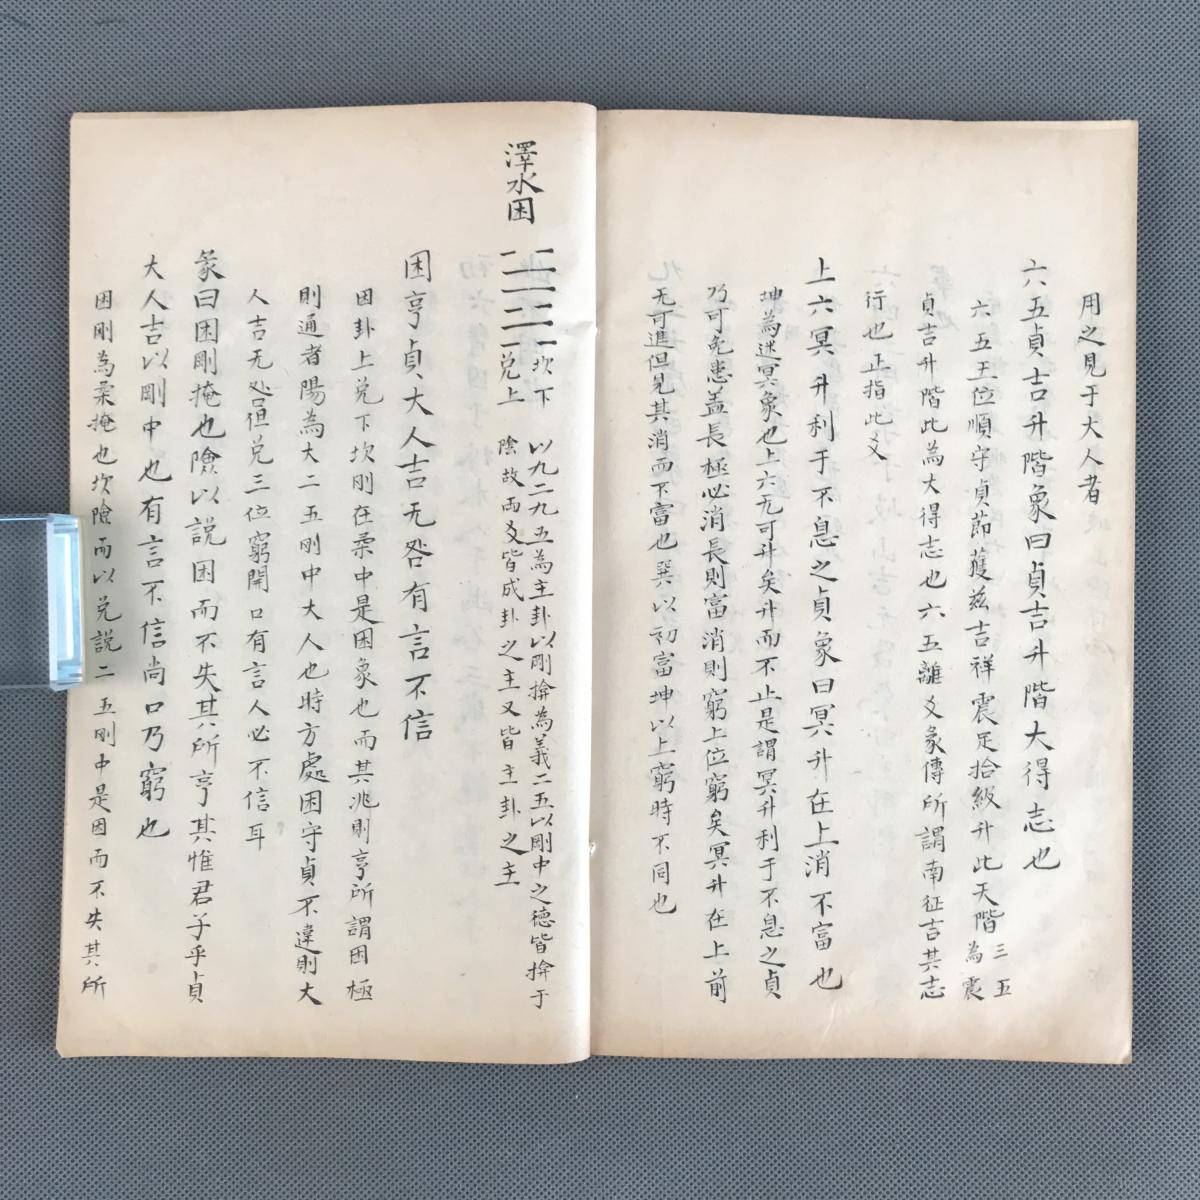 用之見于大人者
六五貞吉升階象曰貞吉升階大得志也
六五王位順守貞節獲茲吉祥震足拾級升此天階三五為震
貞吉升階此為大得志也六五離爻彖傳所謂南征吉其志
行也正指此爻
上六冥升利于不息之貞象曰冥升在上消不富也
坤為迷冥象也上六无可升矣升而不止是謂冥升利于不息之貞
乃可免患蓋長極必消長則富消則窮上位窮矣冥升在上前
无可進但見其消而不富也巽以初富坤以上窮時不同也
澤水困
坎下
兌上
以九二九五為主卦以剛揜為義二五以剛中之德皆揜于
陰故两爻皆成卦之主又皆主卦之主
困亨貞大人吉无咎有言不信
困卦上兌下坎剛在柔中是困象也而其兆則亨所謂困極
則通者陽為大二五剛中大人也時方處困守貞不違則大
人吉无咎但兌三位窮開口有言人必不信耳
彖曰困剛掩也險以説困而不失其所亨其惟君子乎貞
大人吉以剛中也有言不信尚口乃窮也
困剛為柔掩也坎險而以兌説二五剛中是困而不失其所